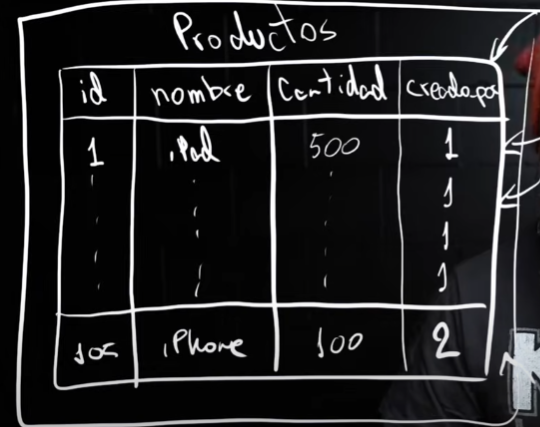 Productos
id nombre Cantidad creado por
1 iPad 500 1
1
1
1
iPhone 100 2